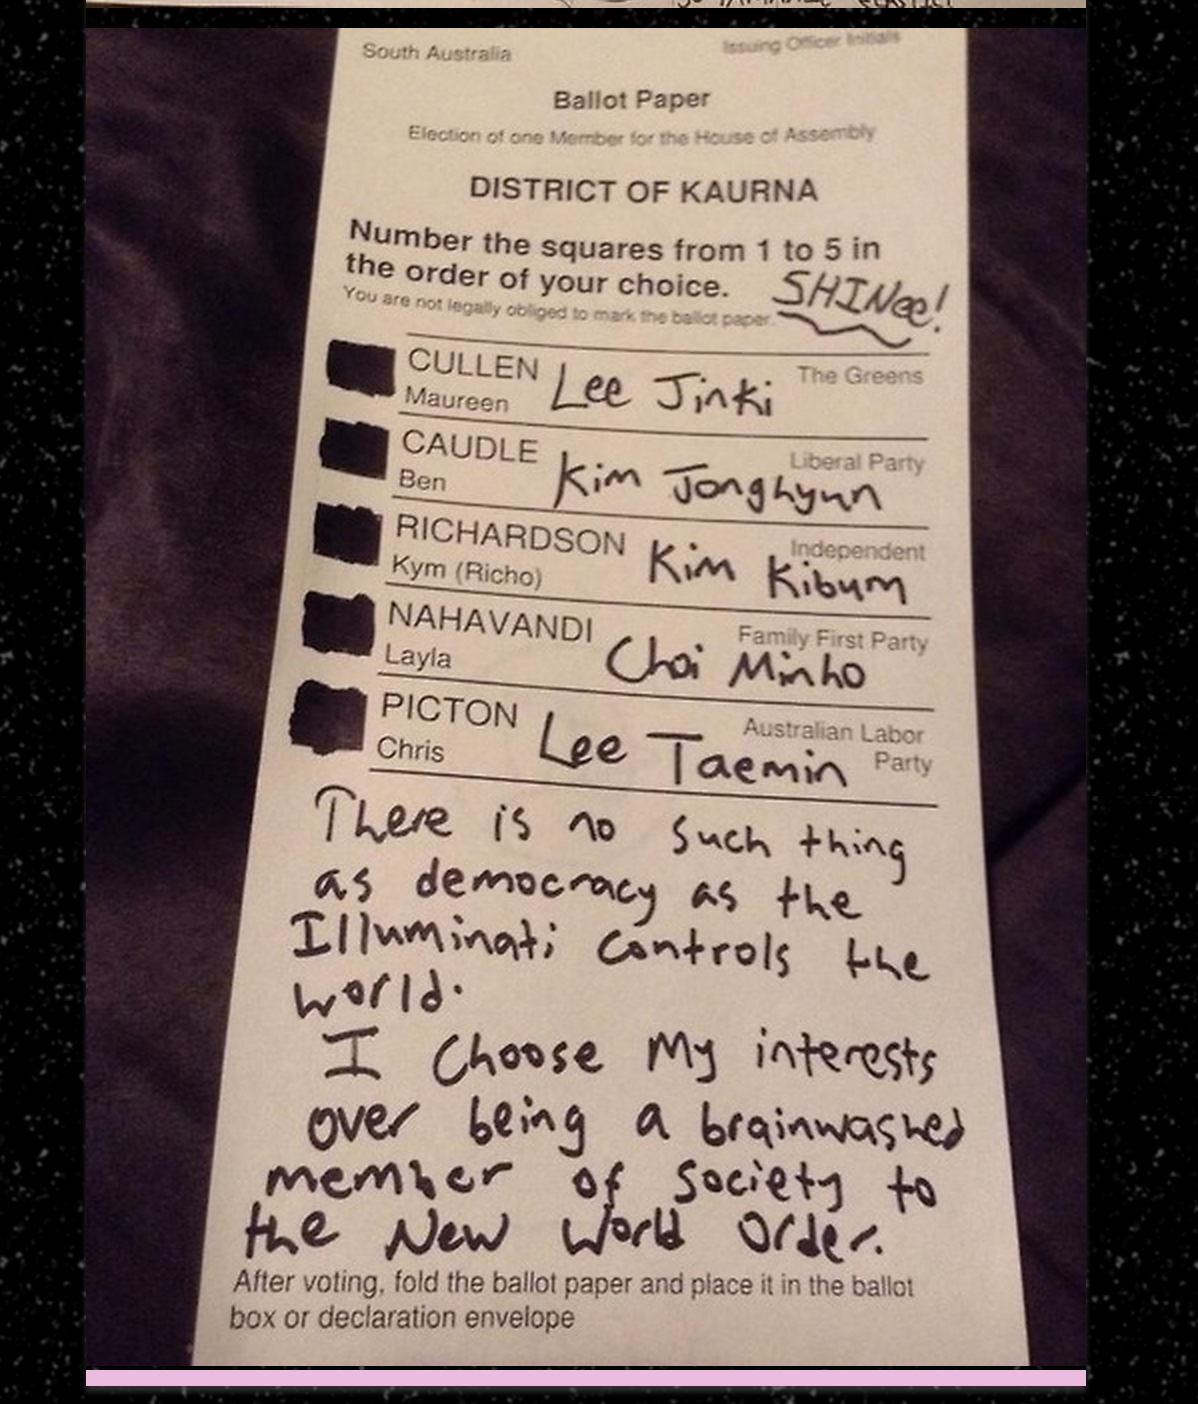 South Australia
Issuing Officer Initials
Ballot Paper
Election of one Member for the House of Assembly
DISTRICT OF KAURNA
Number the squares from 1 to 5 in
the order of your choice.
SHINee!
You are not legally obliged to mark the ballot paper.
CULLEN
Maureen
Lee Jinki
The Greens
CAUDLE
Ben
Kim Jonghyun
Liberal Party
RICHARDSON
Kym (Richo)
Kim Kibum
Independent
NAHAVANDI
Layla
Choi Minho
Family First Party
PICTON
Chris
Lee Taemin
Australian Labor
Party
There is no such thing
as democracy as the
Illuminati controls the
world.
I Choose My interests
over being a brainwashed
member of society to
the New World Order.
After voting, fold the ballot paper and place it in the ballot
box or declaration envelope